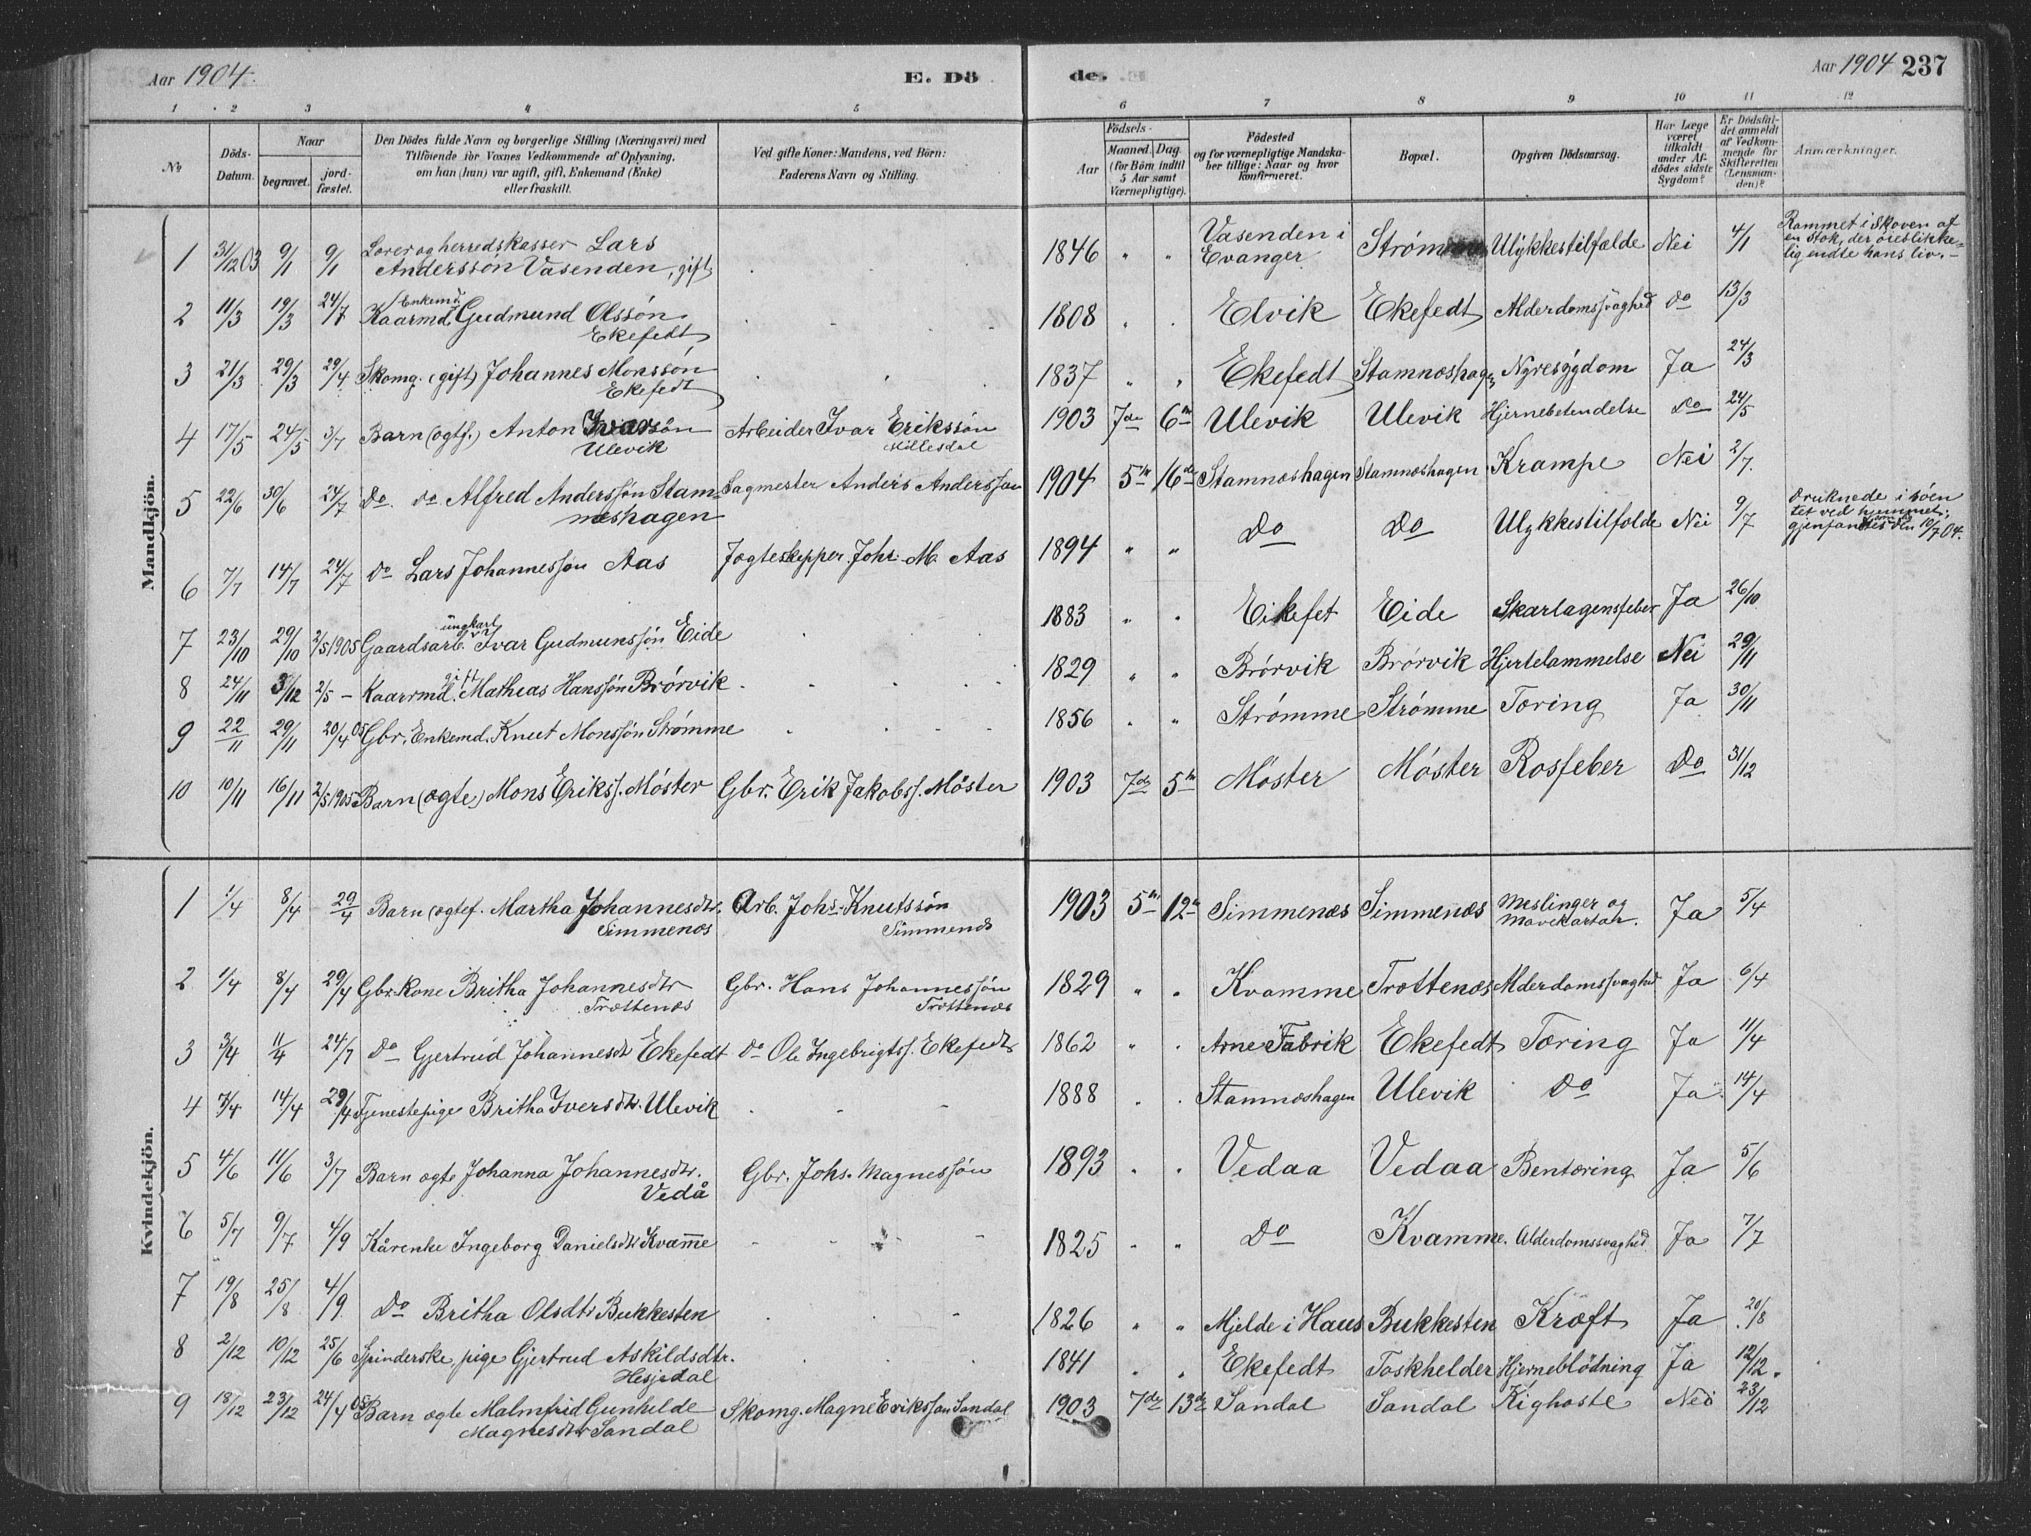 Aar 1904. E. Dö de. Aar 1904 237
1 2 3 4 5 6 7 8 9 10 11 12
No
Döds-Datum.
Naar
begravet.
jord-fæstet.
Den Dödes fulde Navn og borgerlige Stilling (Næringsvei) med
Tilföiende for Voxnes Vedkommende af Oplysning,
om han (hun) var ugift, gift, Enkemand (Enke)
eller fraskilt.
Ved gifte Koner: Mandens, ved Börn:
Faderens Navn og Stilling.
Födsels-
Aar
Maaned. Dag.
(for Börn indtil
5 Aar samt
Værnepligtige).
Födested
og for værnepligtige Mandska-
ber tillige: Naar og hvor
konfirmeret.
Bopæl.
Opgiven Dödsaarsag.
Har Læge
været
tilkaldt
under Af-
dödes sidste
Sygdom?
Er Dödsfal-
det anmeldt
af Vedkom-
mende for
Skifteretten
(Lensman-
den)?
Anmærkninger.
Mandkjön.
1 31/12 03 9/1 9/1 Lærer og herredskasser Lars
Anderssøn Vasenden, gift 1846 " " Vasenden i
Evanger. Ulykkestilfælde Nei 4/1 Rammet i skoven af
en stok, der øieslikke-
lig endte hans liv.-
2 11/3 19/3 24/7 Kaarmd. Enkemd. Gudmund Olssøn
Ekefedt 1808 Elvik Ekefedt Alderdomssvaghed do 13/3
3 21/3 29/3 29/4 Skomg. (gift) Johannes Monssøn
Ekefedt 1837 " " Ekefedt Stamnæshagen Nyresygdom Ja 24/3
4 17/5 24/5 3/7 Barn (ægtf.) Anton Ivarssøn
Ulevik Arbeider Ivar Erikssøn
Millesdal 1903 7de 6te Ulevik Ulevik Hjernebetendelse Do 24/5
5 22/6 30/6 24/7 Do do Alfred Anderssøn Stam-
næshagen Sagmester Anders Anderssøn 1904 5te 16de Stamnæshagen Stamnæshagen Krampe Nei 2/7.
6 7/7 14/7 24/7 do Lars Johannessøn Aas Jægteskipper Johs M. Aas 1894 " " Do Do Ulykkestilfælde Nei 9/7 Druknede i søen
tæt ved hjemmet;
10/7 04.
7 23/10 29/10 2/5 1905 Gaardsarb. ungkarl Ivar Gudmunssøn Eide 1883 " " Eikefet Eide Skarlagensfeber Ja 26/10
8 24/11 3/12 2/5 - Kaarmd. gift Mathias Hanssøn Brørvik 1829 " " Brørvik Brørvik Hjertelammelse Nei 29/11
9 22/11 29/11 20/4 05 Gbr. Enkemd. Knut Monssøn Strømme 1856 " " Strømme Strømme Tæring Ja 30/11
10 10/11 16/11 2/5 1905 Barn (ægte) Mons Erikss. Møster Gbr. Erik Jakobss. Møster 1903 7de 5te Møster Møster Rosfeber Do 31/12
Kvindekjön.
1 1/4 8/4 29/4 Barn (ægtef. Martha Johannesdtr.
Simmenæs Arb. Johs Knutssøn
Simmenæs 1903 5te 12te Simmenæs Simmenæs Meslinger og
Mavekartah. Ja 5/4
2 1/4 8/4 29/4 Gbr. Kone Britha Johannesdtr
Trættenæs Gbr. Hans Johannessøn
Trættenæs 1829 " " Kvamme Trættenæs Alderdomssvaghed Ja 6/4
3 3/4 11/4 24/7 Do Gjertrud Johannesdt Ekefedt Do Ole Ingebrigtss. Ekefedt 1862 " . Arne Fabrik Ekefedt Tæring Ja 11/4
4 7/4 14/4 29/4 Tjenestepige Britha Iversdtr. Ulevik 1888 . . Stamnæshagen Ulevik Do Ja 14/4
5 4/6 11/6 3/7 Barn ægte Johanna Johannesdtr.
Vedå Gbr. Johs. Magnessøn 1893 . . Vedaa Vedaa Bentæring Ja 5/6
6 5/7 9/7 4/9 Kårenke Ingeborg Danielsdtr Kvamme 1825 " " Do Kvamme. Alderdomssvaghed Ja 7/7
7 19/8 25/8 4/9 Do Britha Olsdtr Bukkesten 1826 " " Mjelde i Haus Bukkesten Kræft Ja 20/8
8 2/12 10/12 25/6 Spinderske, pige Gjertrud Askildsdtr.
Hesjedal 1841 " . Ekefedt Toskhelder Hjerneblødning Ja 12/12.
9 18/12 23/12 24/4 05 Barn ægte Malmfrid Gunhilde
Magnesdtr Sandal Skomg. Magne Erikssøn Sandal 1903 7de 13de Sandal Sandal Kighoste Nei 23/12